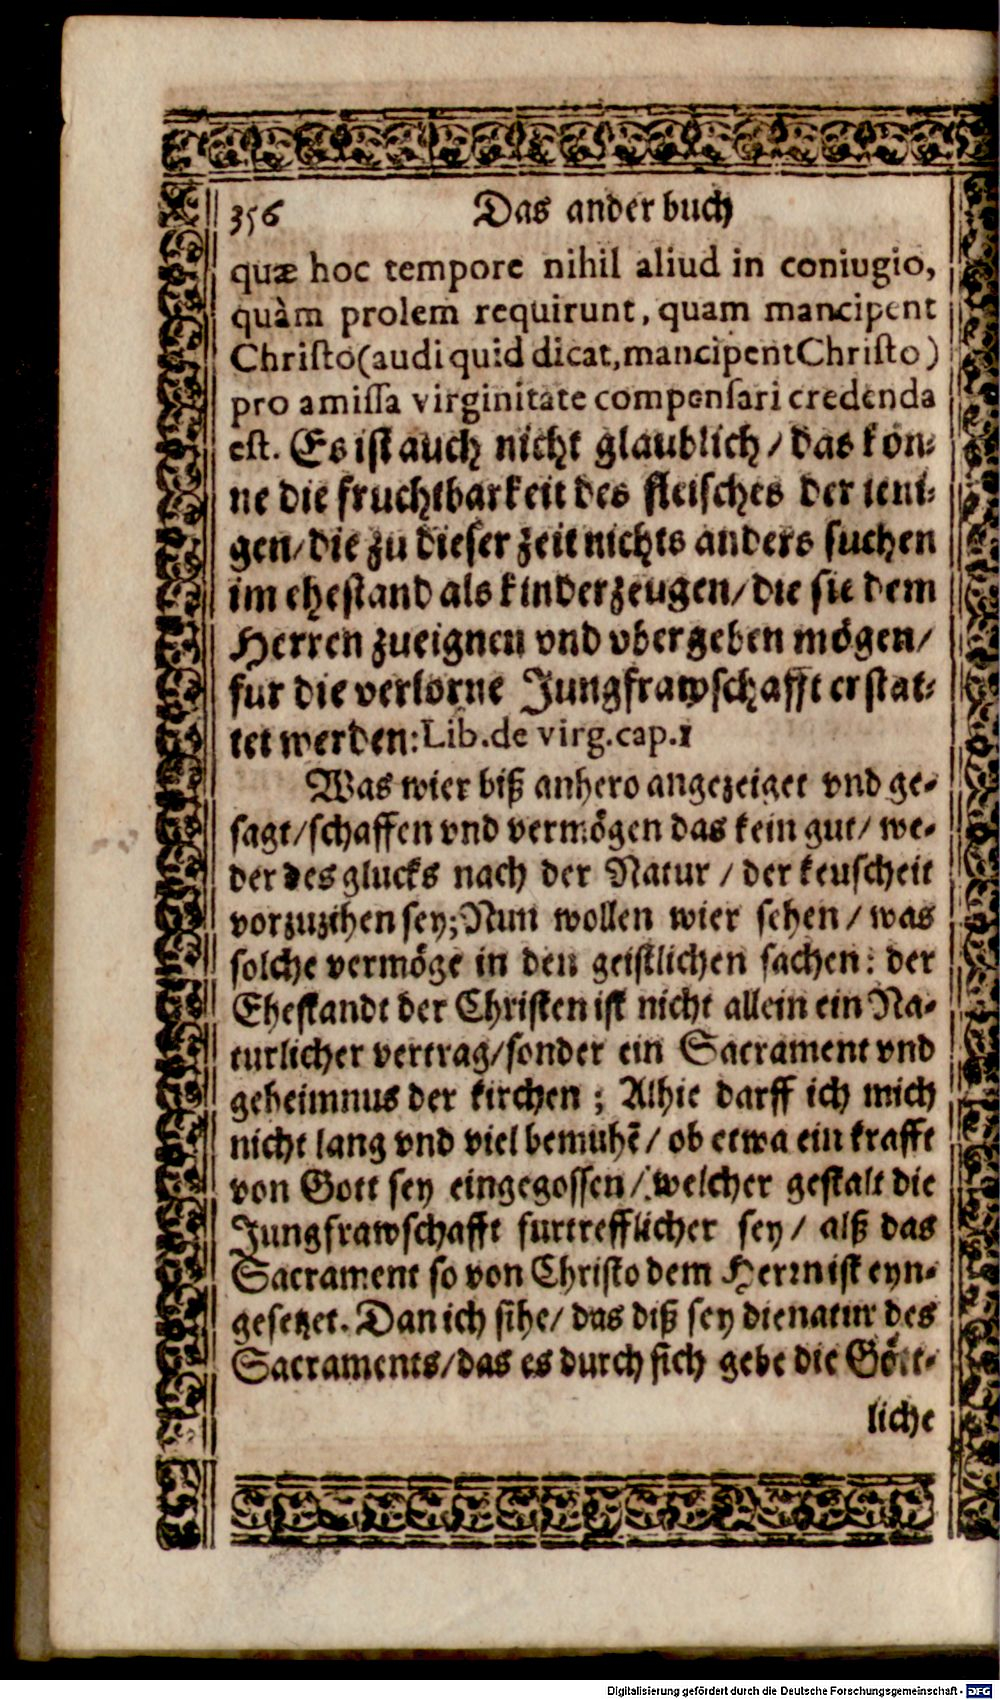 356 Das ander buch
quæ hoc tempore nihil aliud in coniugio,
quàm prolem requirunt, quam mancipent
Christo(audi quid dicat, mancipent Christo)
pro amissa virginitate compensari credenda
est. Es ist auch nicht glaublich/ das kön-
ne die fruchtbarkeit des fleisches der ieni-
gen/ die zu dieser zeit nichts anders suchen
im ehestand als kinder zeugen/ die sie dem
Herren zueignen vnd vbergeben mögen/
fur die verlorne Jungfrawschafft erstat-
tet werden: Lib. de virg. cap. 1
Was wier biß anhero angezeiget vnd ge-
sagt/ schaffen vnd vermögen das kein gut/ we-
der des glucks nach der Natur / der keuscheit
vorzuzihen sey; Nun wollen wier sehen/ was
solche vermöge in den geistlichen sachen: der
Ehestandt der Christen ist nicht allein ein Na-
turlicher vertrag/ sonder ein Sacrament vnd
geheimnus der kirchen ; Alhie darff ich mich
nicht lang vnd viel bemuhē/ ob etwa ein krafft
von Gott sey eingegossen/ welcher gestalt die
Jungfrawschafft furtrefflicher sey/ alß das
Sacrament so von Christo dem Herrn ist eyn-
gesetzet. Dan ich sihe/ das diß sey die natur des
Sacraments/ das es durch sich gebe die Gött-
liche
Digitalisierung gefördert durch die Deutsche Forschungsgemeinschaft - DFG